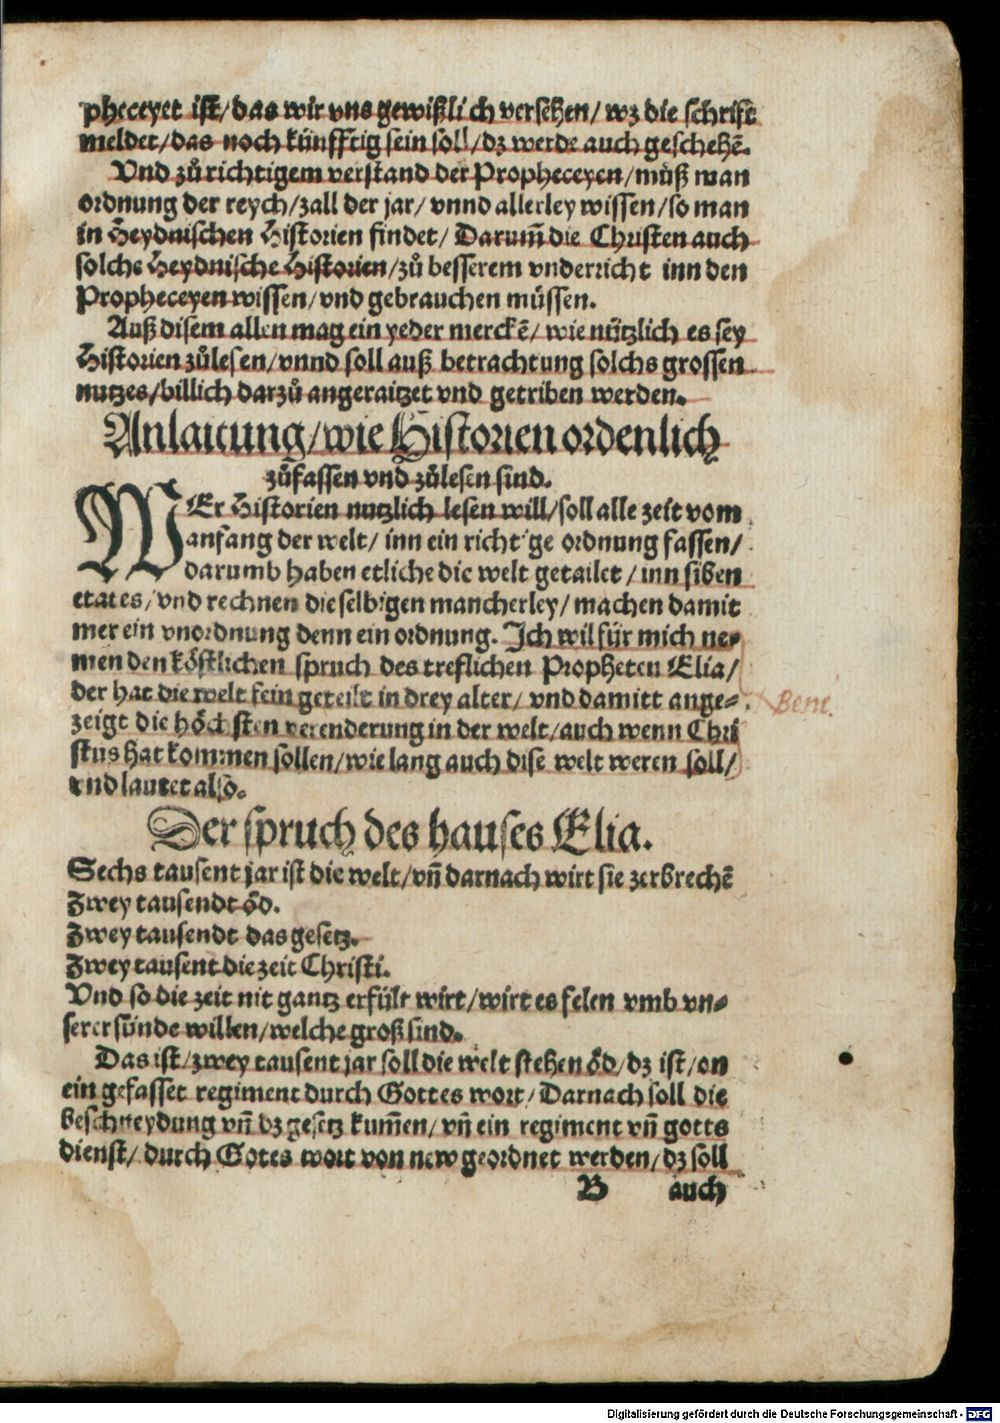 pheceyet ist/das wir vns gewißlich versehen/wz die schrifft
meldet/das noch künfftig sein soll/dz werde auch geschehē.
Vnd zů richtigem verstand der Propheceyen/můß man
ordnung der reych/zall der jar/vnnd allerley wissen/so man
in Heydnischen Historien findet/Darum̃ die Christen auch
solche Heydnische Historien/zů besserem vnderricht inn den
Propheceyen wissen/vnd gebrauchen müssen.
Auß disem allen mag ein yeder merckē/wie nützlich es sey
Historien zůlesen/vnnd soll auß betrachtung solchs grossen
nutzes/billich darzů angeraitzet vnd getriben werden.
Anlaitung/wie Historien ordenlich
zůfassen vnd zůlesen sind.
WEr Historien nutzlich lesen will/soll alle zeit vom
anfang der welt/inn ein richtige ordnung fassen/
darumb haben etliche die welt getailet/inn siben
etates/vnd rechnen die selbigen mancherley/machen damit
mer ein vnordnung denn ein ordnung. Ich wil für mich ne⸗
men den köstlichen spruch des treflichen Propheten Elia/
der hat die welt fein geteilt in drey alter/vnd damitt ange⸗
zeigt die höchsten verenderung in der welt/auch wenn Chri
stus hat kommen sollen/wie lang auch dise welt weren soll/
vnd lautet also.
Bene.
Der spruch des hauses Elia.
Sechs tausent jar ist die welt/vn̄ darnach wirt sie zerbrechē
Zwey tausendt öd.
Zwey tausendt das gesetz.
Zwey tausent die zeit Christi.
Vnd so die zeit nit gantz erfült wirt/wirt es felen vmb vn⸗
serer sünde willen/welche groß sind.
Das ist/zwey tausent jar soll die welt stehen öd/dz ist/on
ein gefasset regiment durch Gottes wort/Darnach soll die
beschneydung vn̄ dz gesetz kum̃en/vn̄ ein regiment vn̄ gotts
dienst/durch Gotes wort von new geordnet werden/dz soll
B auch
Digitalisierung gefördert durch die Deutsche Forschungsgemeinschaft - DFG